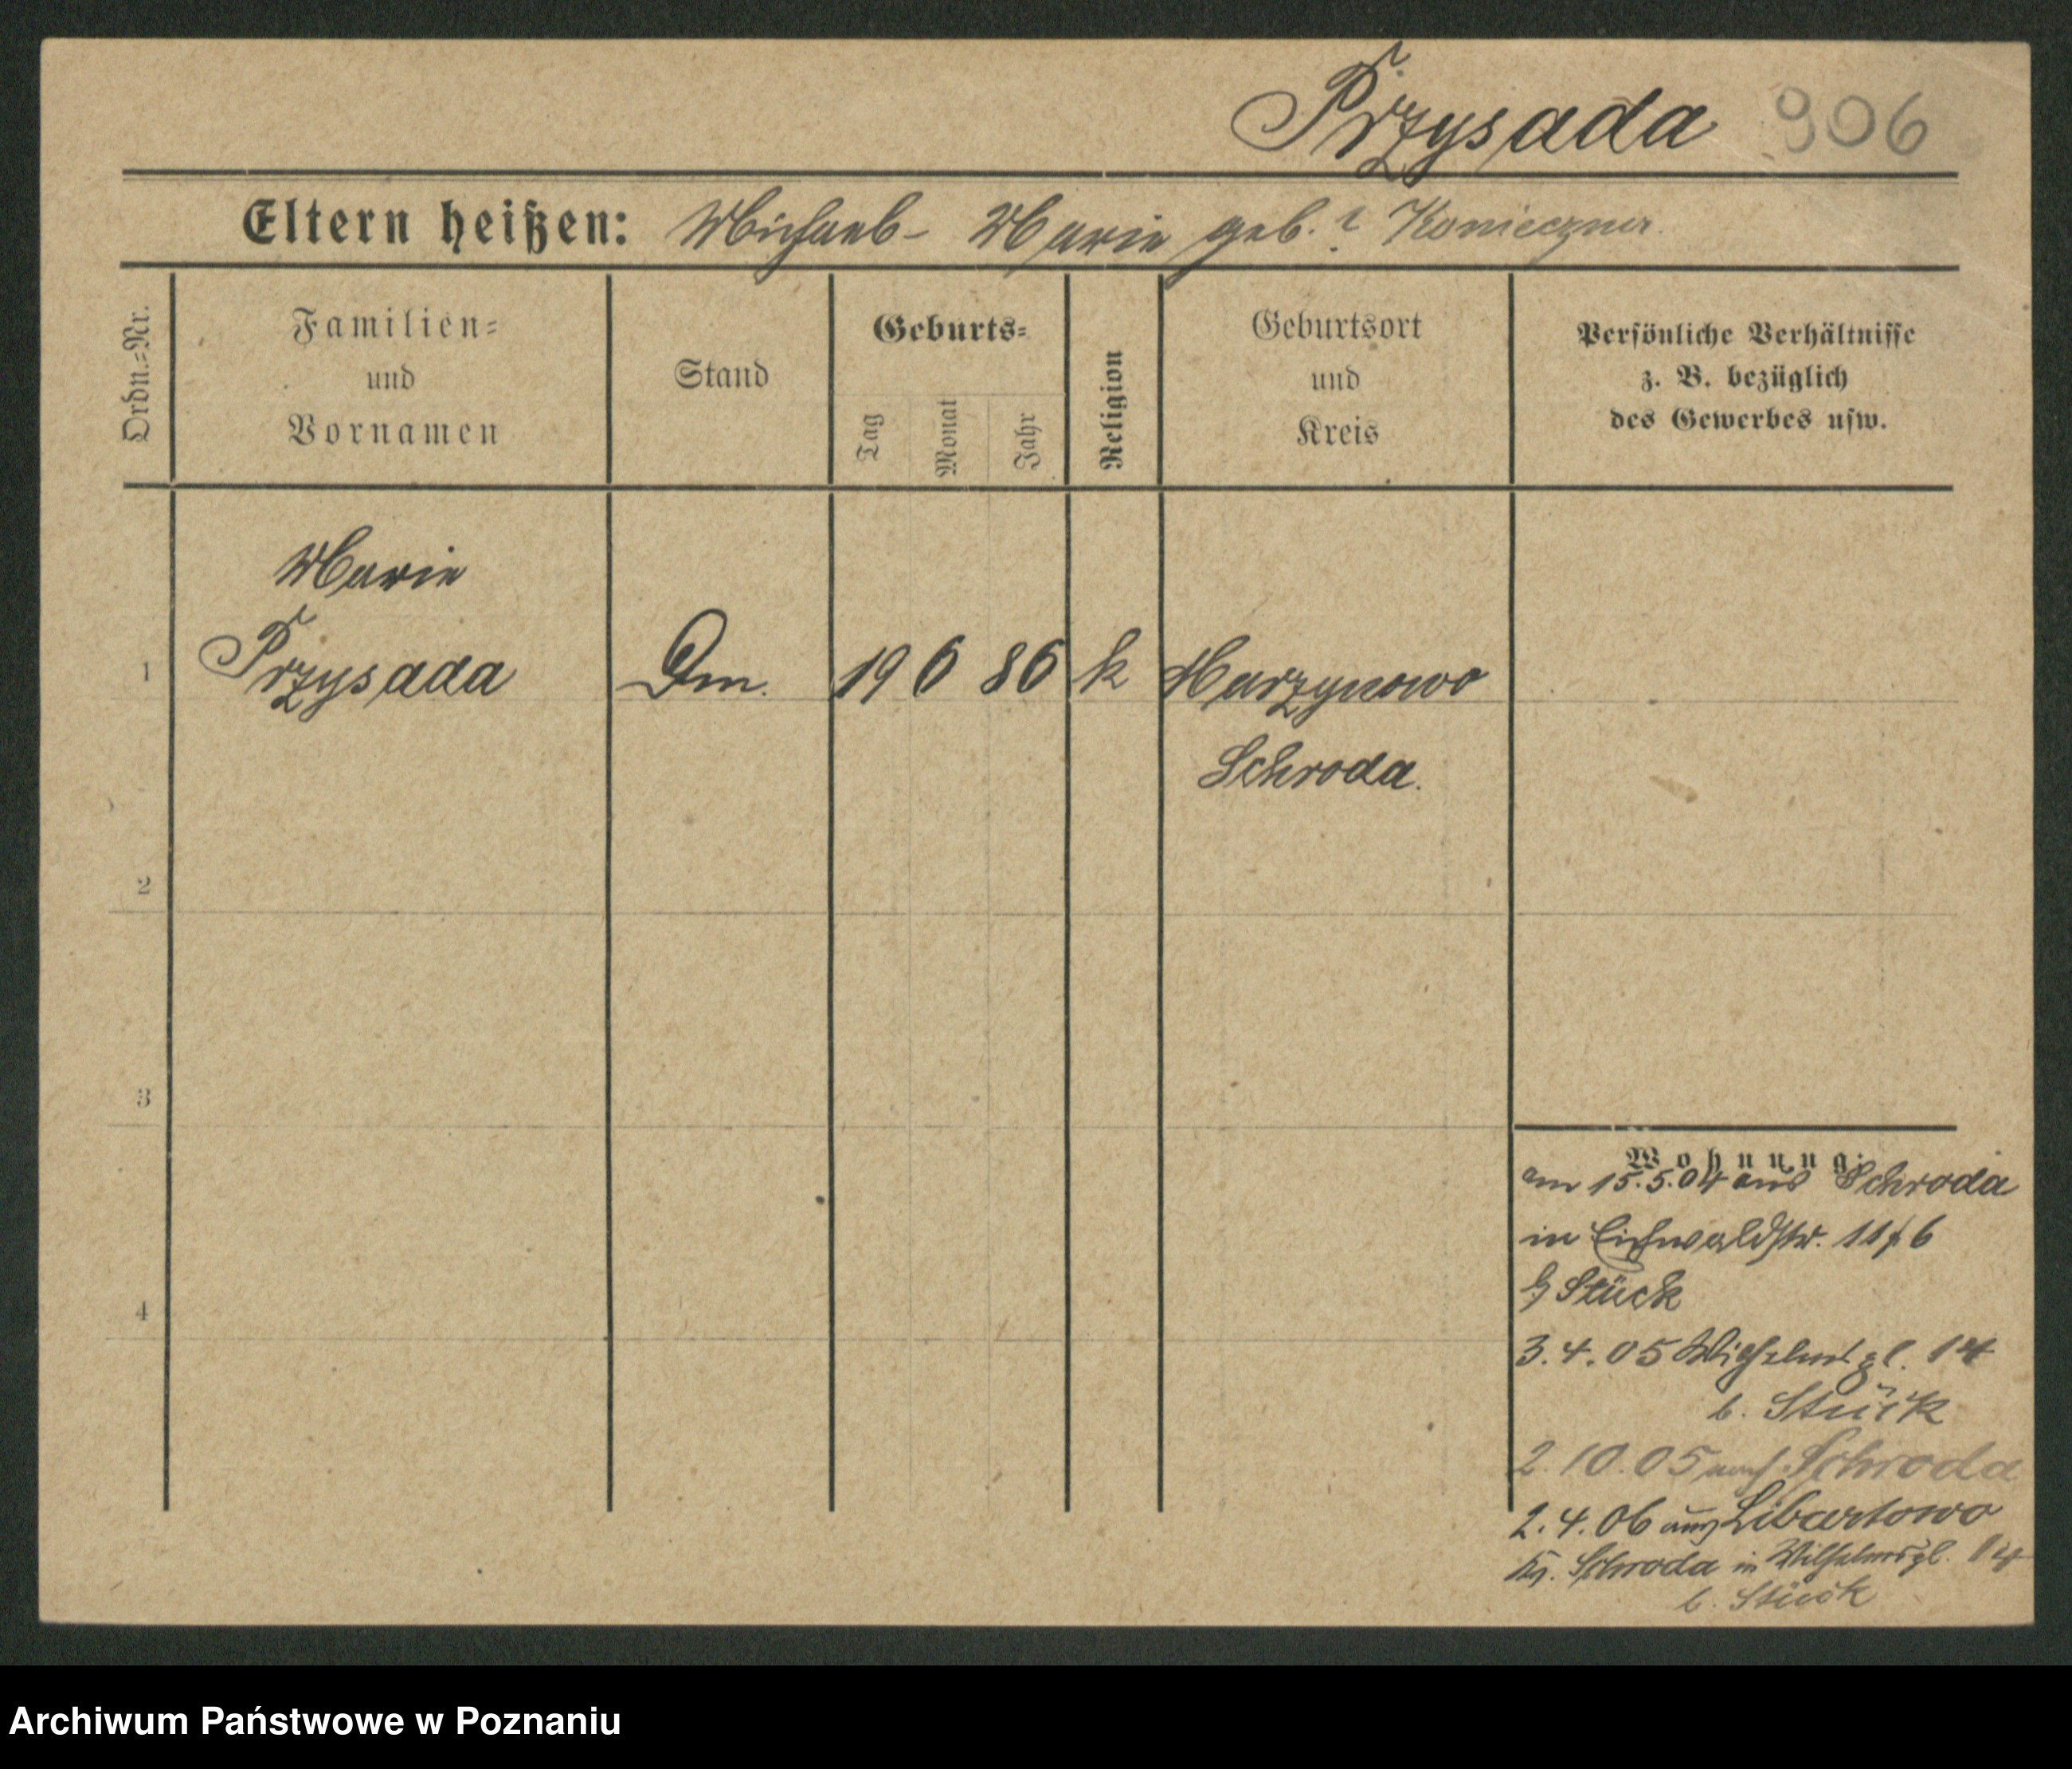 Przysada 906
Eltern heißen: Michael - Marie geb. ? Konieczna
Ordn.=Nr.
Familien=
und
Vornamen
Stand
Geburts=
Tag
Monat
Jahr
Religion
Geburtsort
und
Kreis
Persönliche Verhältnisse
z. B. bezüglich
des Gewerbes usw.
Marie
1 Przysada Dm. 19 6 86 k Murzynowo
Schroda.
2
3
4
Wohnung:
am 15.5.04 aus Schroda
in Eichwaldstr. 11
Stück
3.4.05 Wilhelmspl. 14
b. Stück
2.10.05 nach Schroda
2.4.06 aus Libartowo
Kr. Schroda in Wilhelmspl. 14
b. Stück
Archiwum Państwowe w Poznaniu